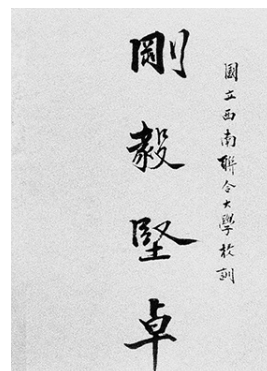 國立西南聯合大學校訓
剛毅堅卓